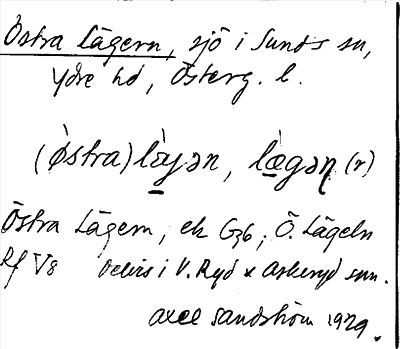 Östra Lägern, sjö i Sunds sn,
Ydre hd, Österg. l.
(östra) lägən, lägən (r)
Östra Lägern, ek G36; Ö. Lägeln
Rf V8 delvis i V. Ryd x Asberyd snn.
Axel Sandström 1929.